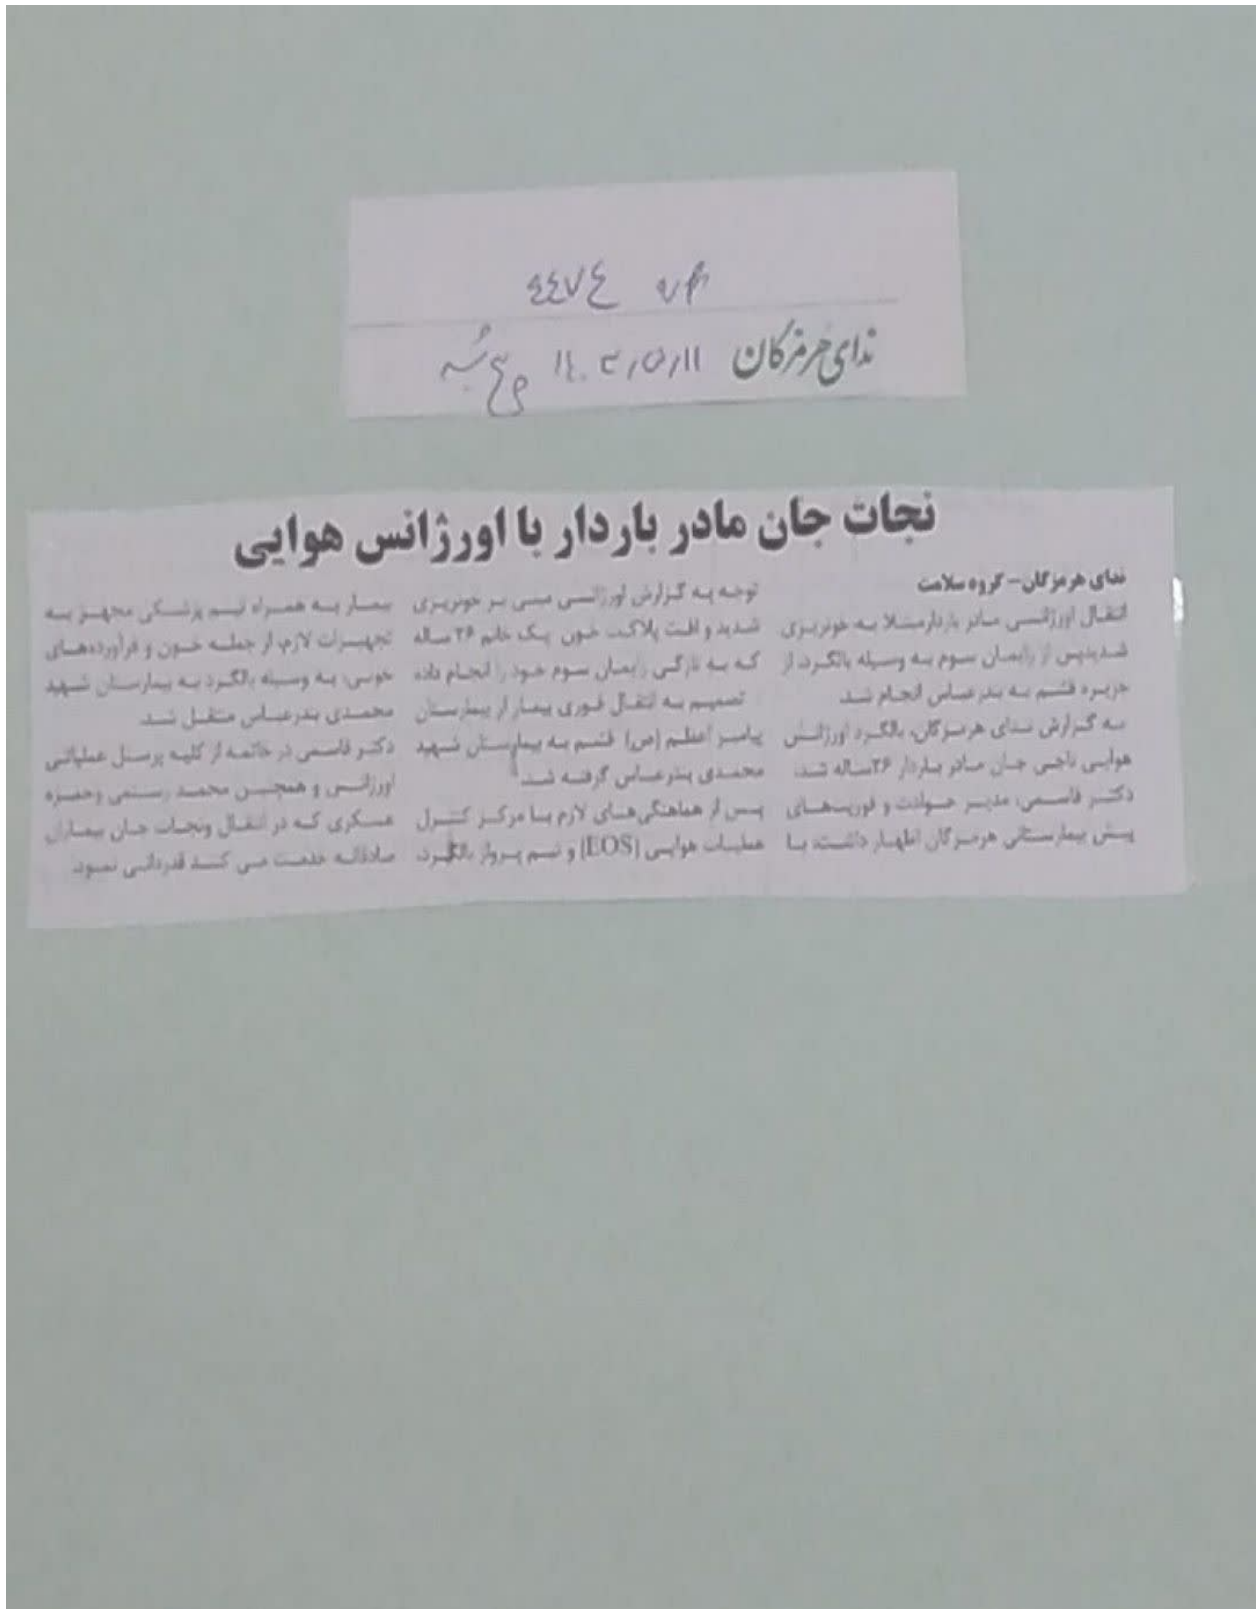 ٤٤٧٤
ندای هرمزگان ۱۴۰۳/۵/۱۱ پنج شنبه
نجات جان مادر باردار با اورژانس هوایی
ندای هرمزگان- گروه سلامت
انتقال اورژانسی مادر باردارمبتلا به خونریزی
شدیدپس از زایمان سوم به وسیله بالگرد، از
جزیره قشم به بندرعباس انجام شد.
به گزارش ندای هرمزگان، بالگرد اورژانس
هوایی ناجی جان مادر باردار ۲۶ساله شد.
دکتر قاسمی، مدیر حوادث و فوریت‌های
پیش بیمارستانی هرمزگان اظهار داشت: با
توجه به گزارش اورژانسی مبنی بر خونریزی
شدید و افت پلاکت خون یک خانم ۲۶ ساله
که به تازگی زایمان سوم خود را انجام داده
تصمیم به انتقال فوری بیمار از بیمارستان
پیامبر اعظم (ص) قشم به بیمارستان شهید
محمدی بندرعباس گرفته شد.
پس از هماهنگی‌های لازم با مرکز کنترل
عملیات هوایی (EOS) و تیم پرواز بالگرد،
بیمار به همراه تیم پزشکی مجهز به
تجهیزات لازم، از جمله خون و فرآورده‌های
خونی، به وسیله بالگرد به بیمارستان شهید
محمدی بندرعباس منتقل شد.
دکتر قاسمی در خاتمه از کلیه پرسنل عملیاتی
اورژانس و همچنین محمد رستمی وحمزه
عسکری که در انتقال ونجات جان بیماران
صادقانه خدمت می کند قدردانی نمود.